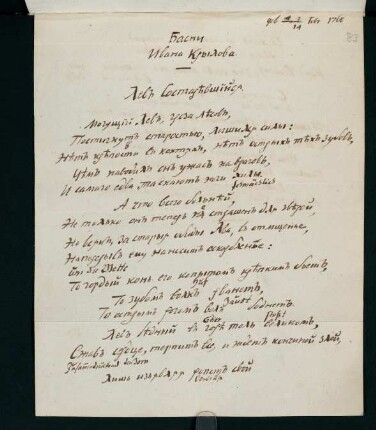 Басни
Ивана Крылова
Левъ Состарѣвшійся
Могущій Левъ, гроза лѣсовъ,
Постигнутъ старостью, лишился силы:
Нѣтъ крѣпости въ когтяхъ, нѣтъ острыхъ тѣхъ зубовъ,
Чѣмъ наводилъ онъ ужасъ на враговъ,
И самаго едва таскаютъ ноги хилы.
А что всего больнѣй,
Не только онъ теперь не страшенъ для звѣрей,
Но всякъ, за старыя обиды Льва, въ отмщенье,
Наперерывъ ему наноситъ оскорбленье:
То гордый конь его копытомъ крѣпкимъ бьетъ,
То зубомъ волкъ рванетъ,
То острымъ рогомъ волъ боднетъ.
Левъ бѣдный въ горѣ толь великомъ,
Сжавъ сердце, терпитъ все, и ждетъ кончины злой,
Лишь изъявляя ропотъ свой